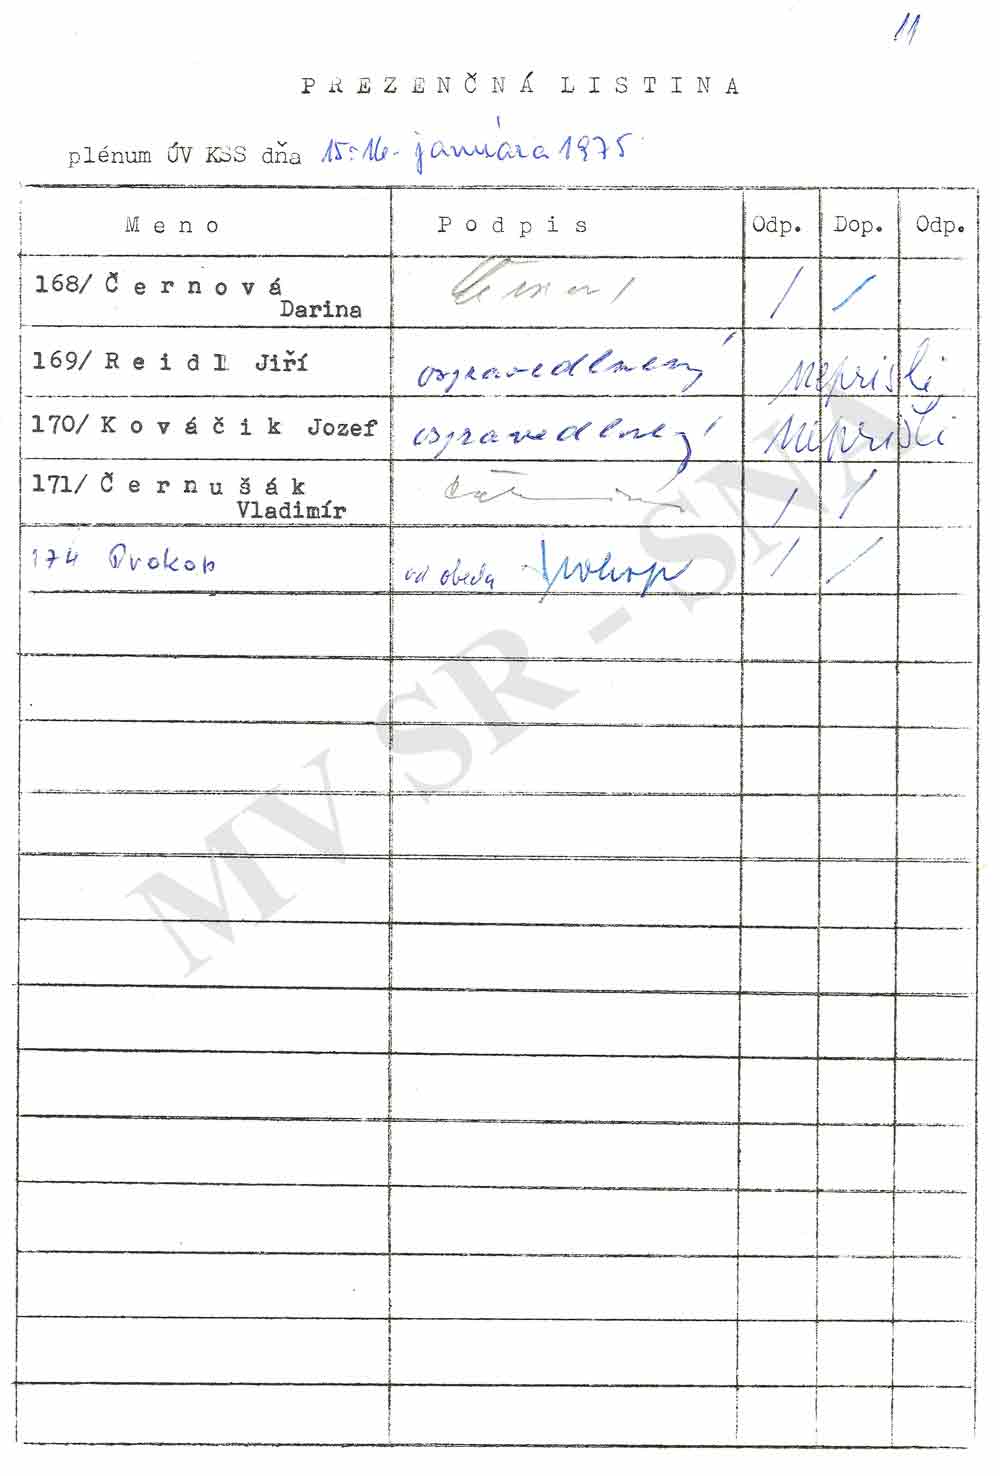 11
PREZENČNÁ LISTINA
plénum ÚV KSS dňa 15.-16. januára 1975
Meno Podpis Odp. Dop. Odp.
168/ Černová / /
Darina
169/ Reidl Jiří ospravedlnený neprišli
170/ Kováčik Jozef ospravedlnený neprišli
171/ Černušák / /
Vladimír
174 Prokop od obeda Prokop / /
MV SR - SNA